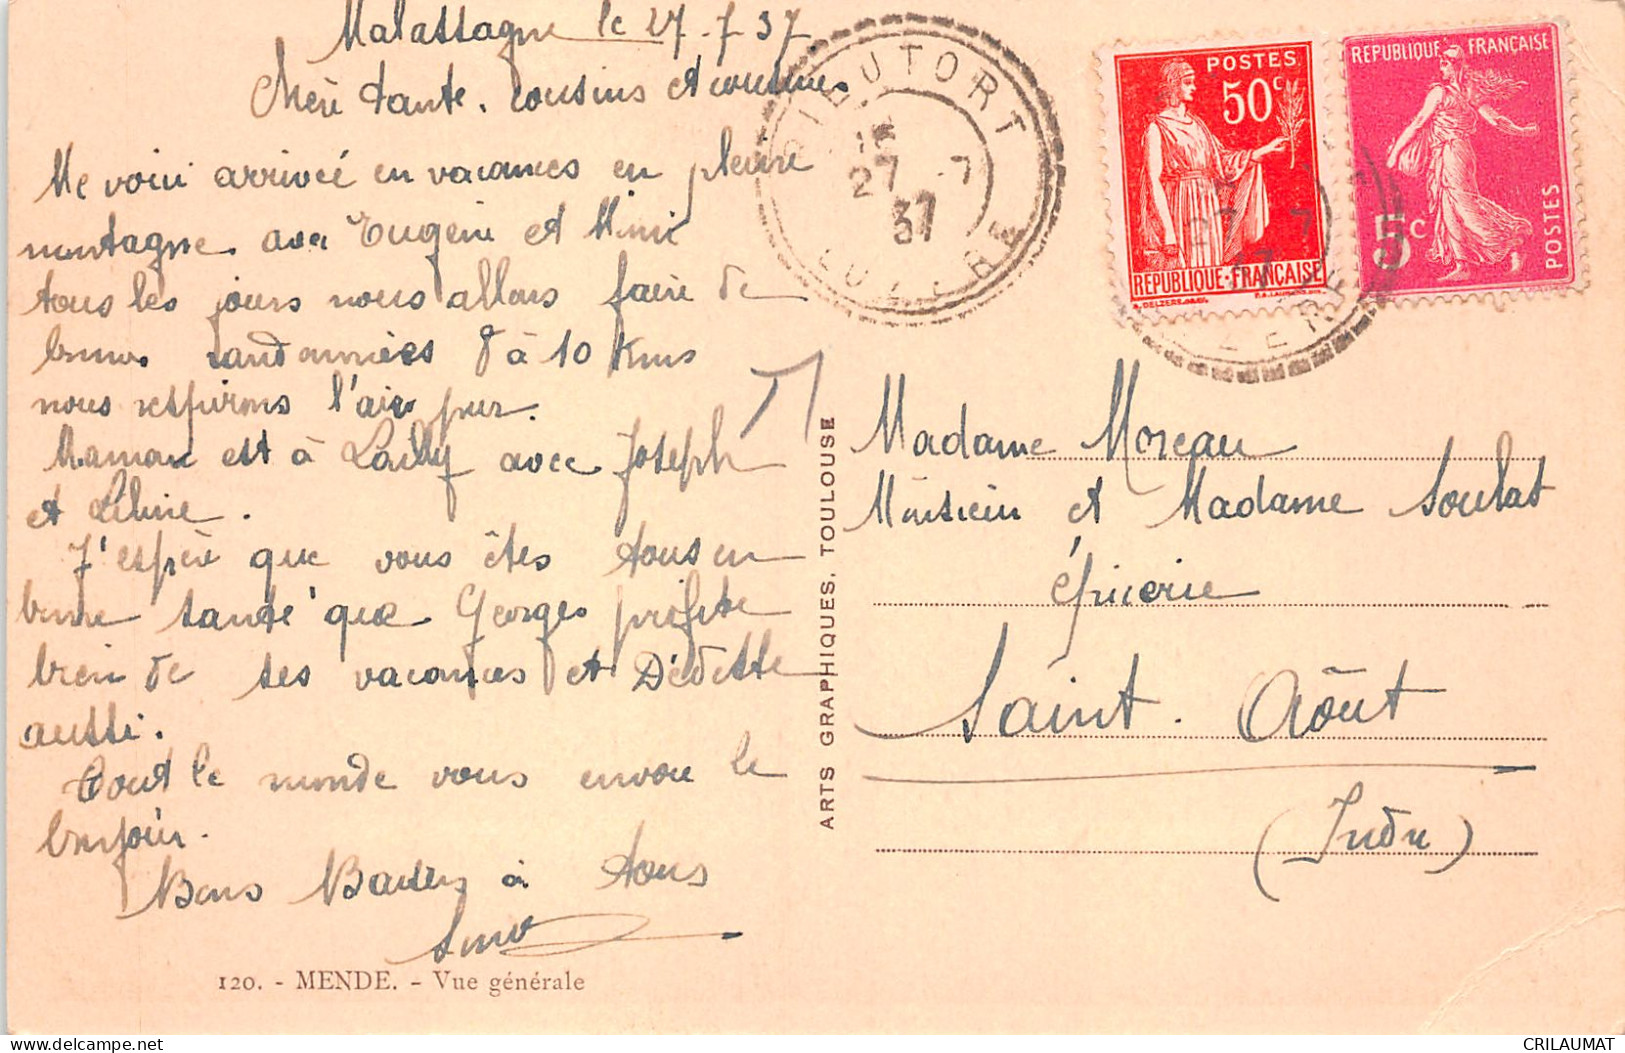 Malassagne le 27.7.37
Chère tante, cousins et cousines
Me voici arrivée en vacances en pleine
montagne avec Eugénie et Mimie
tous les jours nous allons faire de
bonnes randonnées 8 à 10 Kms
nous respirons l'air pur.
Maman est à Lailly avec Joseph
et
J'espère que vous êtes tous en
bonne santé que Georges profite
bien de ses vacances et Dédette
aussi.
Tout le monde vous envoie le
bonjour.
Bons Baisers à tous
120. - MENDE. - Vue générale
ARTS GRAPHIQUES, TOULOUSE
RIEUTORT
15
27 . 7
37
LOZERE
POSTES
50c
REPUBLIQUE-FRANÇAISE
REPUBLIQUE FRANÇAISE
5c
POSTES
27 7
Madame Moreau
Monsieur et Madame Soulat
épicerie
Saint. Août
(Indre)
CRILAUMAT